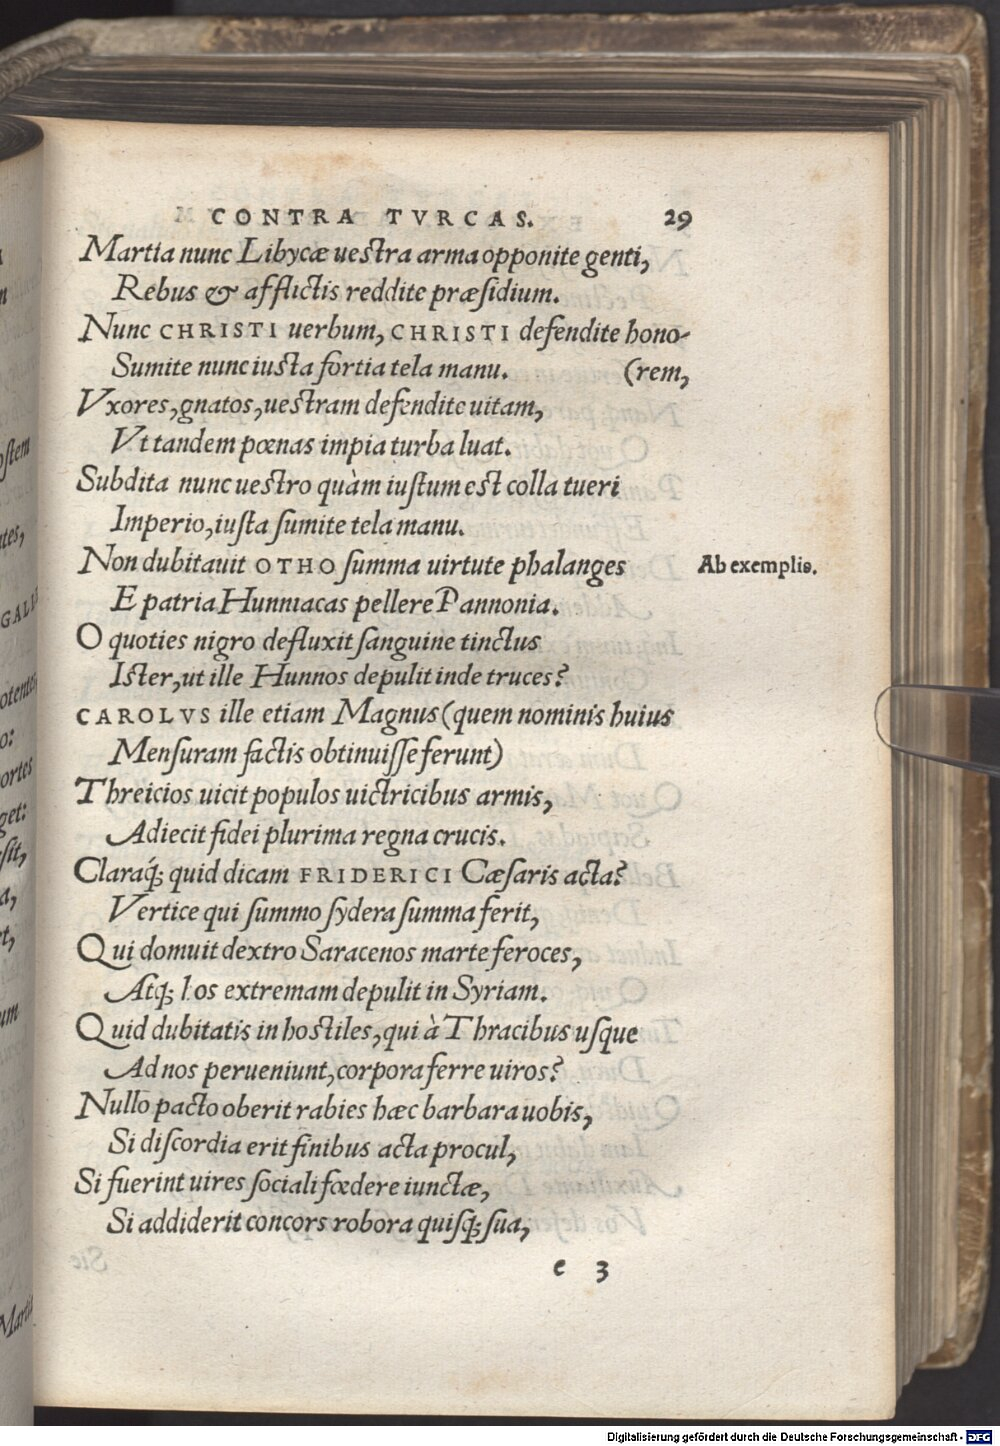 CONTRA TVRCAS. 29
Martia nunc Libycæ uestra arma opponite genti,
Rebus & afflictis reddite præsidium.
Nunc CHRISTI uerbum, CHRISTI defendite hono-
Sumite nunc iusta fortia tela manu. (rem,
Vxores, gnatos, uestram defendite uitam,
Vt tandem pœnas impia turba luat.
Subdita nunc uestro quàm iustum est colla tueri
Imperio, iusta sumite tela manu.
Non dubitauit OTHO summa uirtute phalanges
Ab exemplis.
E patria Hunniacas pellere Pannonia.
O quoties nigro defluxit sanguine tinctus
Ister, ut ille Hunnos depulit inde truces?
CAROLVS ille etiam Magnus (quem nominis huius
Mensuram factis obtinuisse ferunt)
Threicios uicit populos uictricibus armis,
Adiecit fidei plurima regna crucis.
Claraq́; quid dicam FRIDERICI Cæsaris acta?
Vertice qui summo sydera summa ferit,
Qui domuit dextro Saracenos marte feroces,
Atq; hos extremam depulit in Syriam.
Quid dubitatis in hostiles, qui à Thracibus usque
Ad nos perueniunt, corpora ferre uiros?
Nullo pacto oberit rabies hæc barbara uobis,
Si discordia erit finibus acta procul,
Si fuerint uires sociali fœdere iunctæ,
Si addiderit concors robora quisq; sua,
e 3
Digitalisierung gefördert durch die Deutsche Forschungsgemeinschaft - DFG